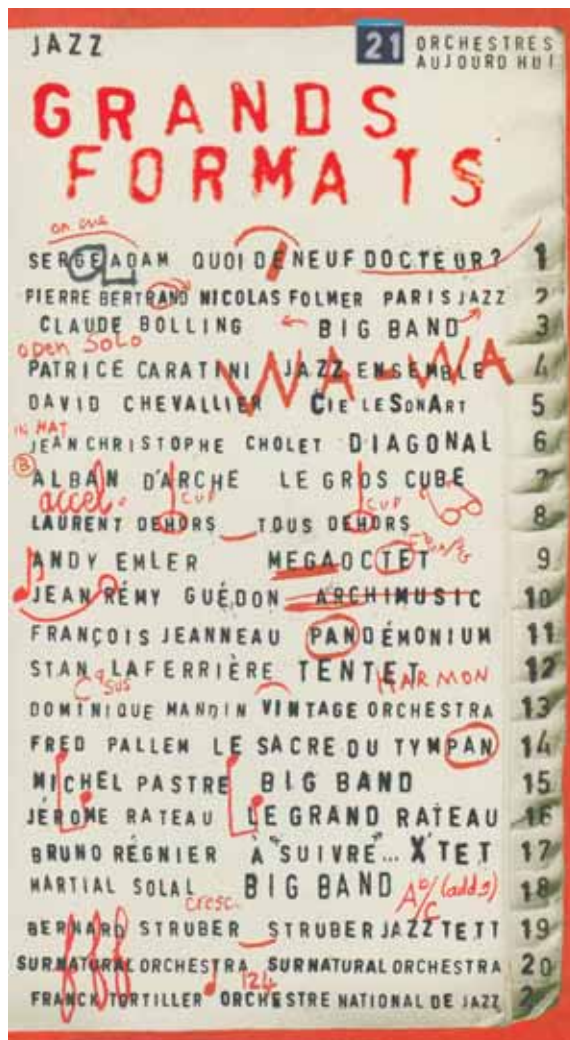 JAZZ
21 ORCHESTRES
AUJOURD'HUI
GRANDS
FORMATS
on cue
SERGE ADAM QUOI DE NEUF DOCTEUR? 1
PIERRE BERTRAND NICOLAS FOLMER PARIS JAZZ 2
CLAUDE BOLLING BIG BAND 3
open SOLO
WA-WA
PATRICE CARATINI JAZZ ENSEMBLE 4
DAVID CHEVALLIER CIE LESONART 5
IN HAT
JEAN CHRISTOPHE CHOLET DIAGONAL 6
B
ALBAN D'ARCHE LE GROS CUBE 7
accel. CUP CUP
LAURENT DEHORS TOUS DEHORS 8
ANDY EMLER MEGAOCTET 9
JEAN RÉMY GUÉDON ARCHIMUSIC 10
FRANÇOIS JEANNEAU PANDÉMONIUM 11
STAN LAFERRIÈRE TENTET 12
C9 SUS HARMON
DOMINIQUE MANDIN VINTAGE ORCHESTRA 13
FRED PALLEM LE SACRE DU TYMPAN 14
MICHEL PASTRE BIG BAND 15
JÉROME RATEAU LE GRAND RATEAU 16
BRUNO RÉGNIER À "SUIVRE"... X'TET 17
MARTIAL SOLAL BIG BAND 18
cresc. Ab/C (add9)
BERNARD STRUBER STRUBER JAZZTETT 19
fff
SURNATURAL ORCHESTRA SURNATURAL ORCHESTRA 20
124
FRANCK TORTILLER ORCHESTRE NATIONAL DE JAZZ 2